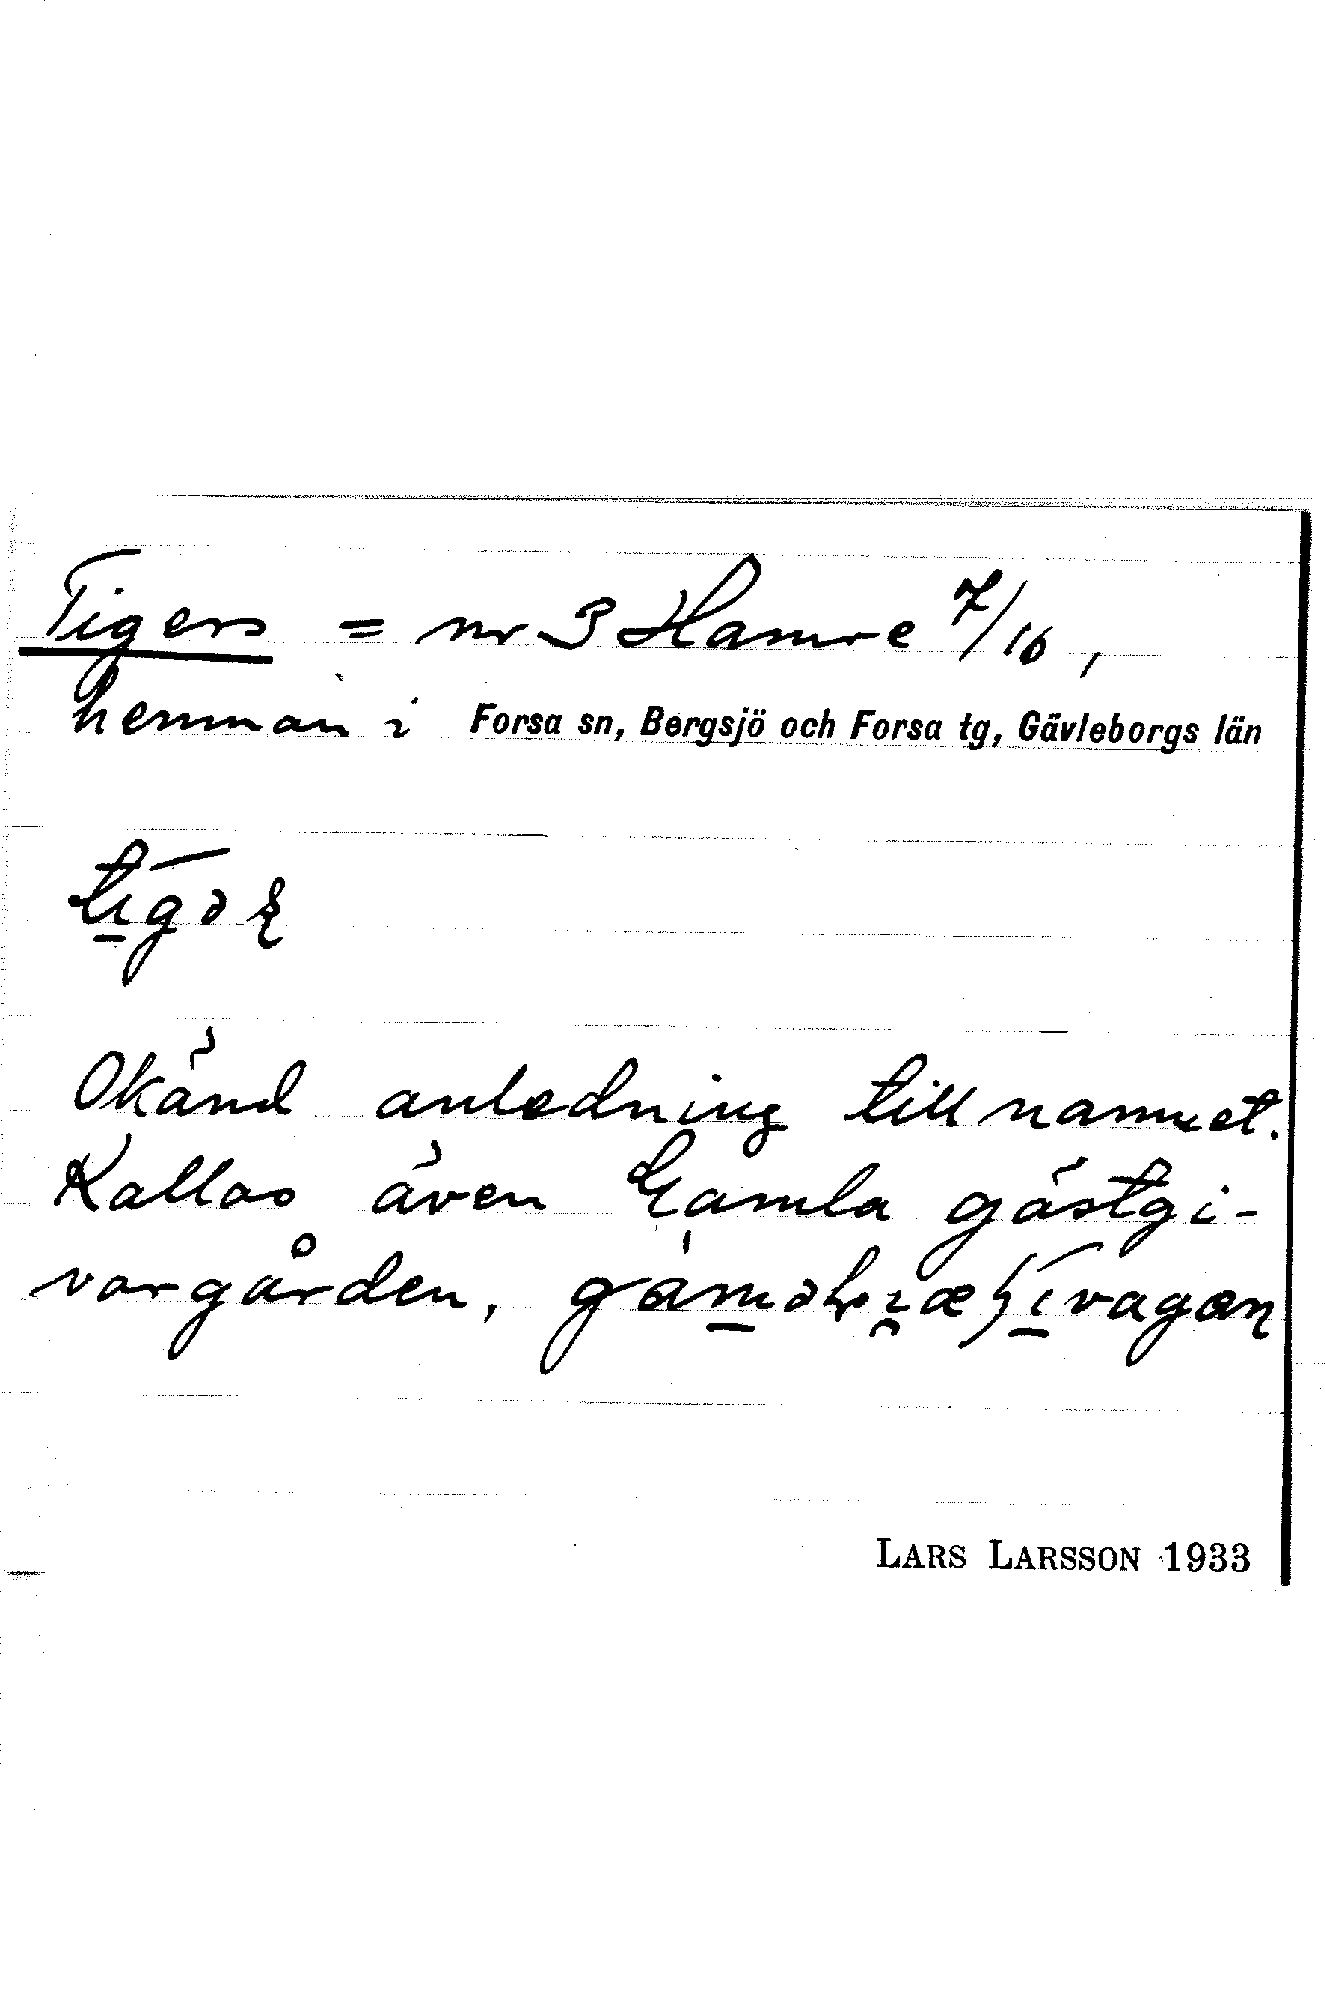 Tigers = nr 3 Hamre 7/16,
hemman i Forsa sn, Bergsjö och Forsa tg, Gävleborgs län
Okänd anledning till namnet.
Kallas även Gamla gästgi-
vargården,
LARS LARSSON 1933